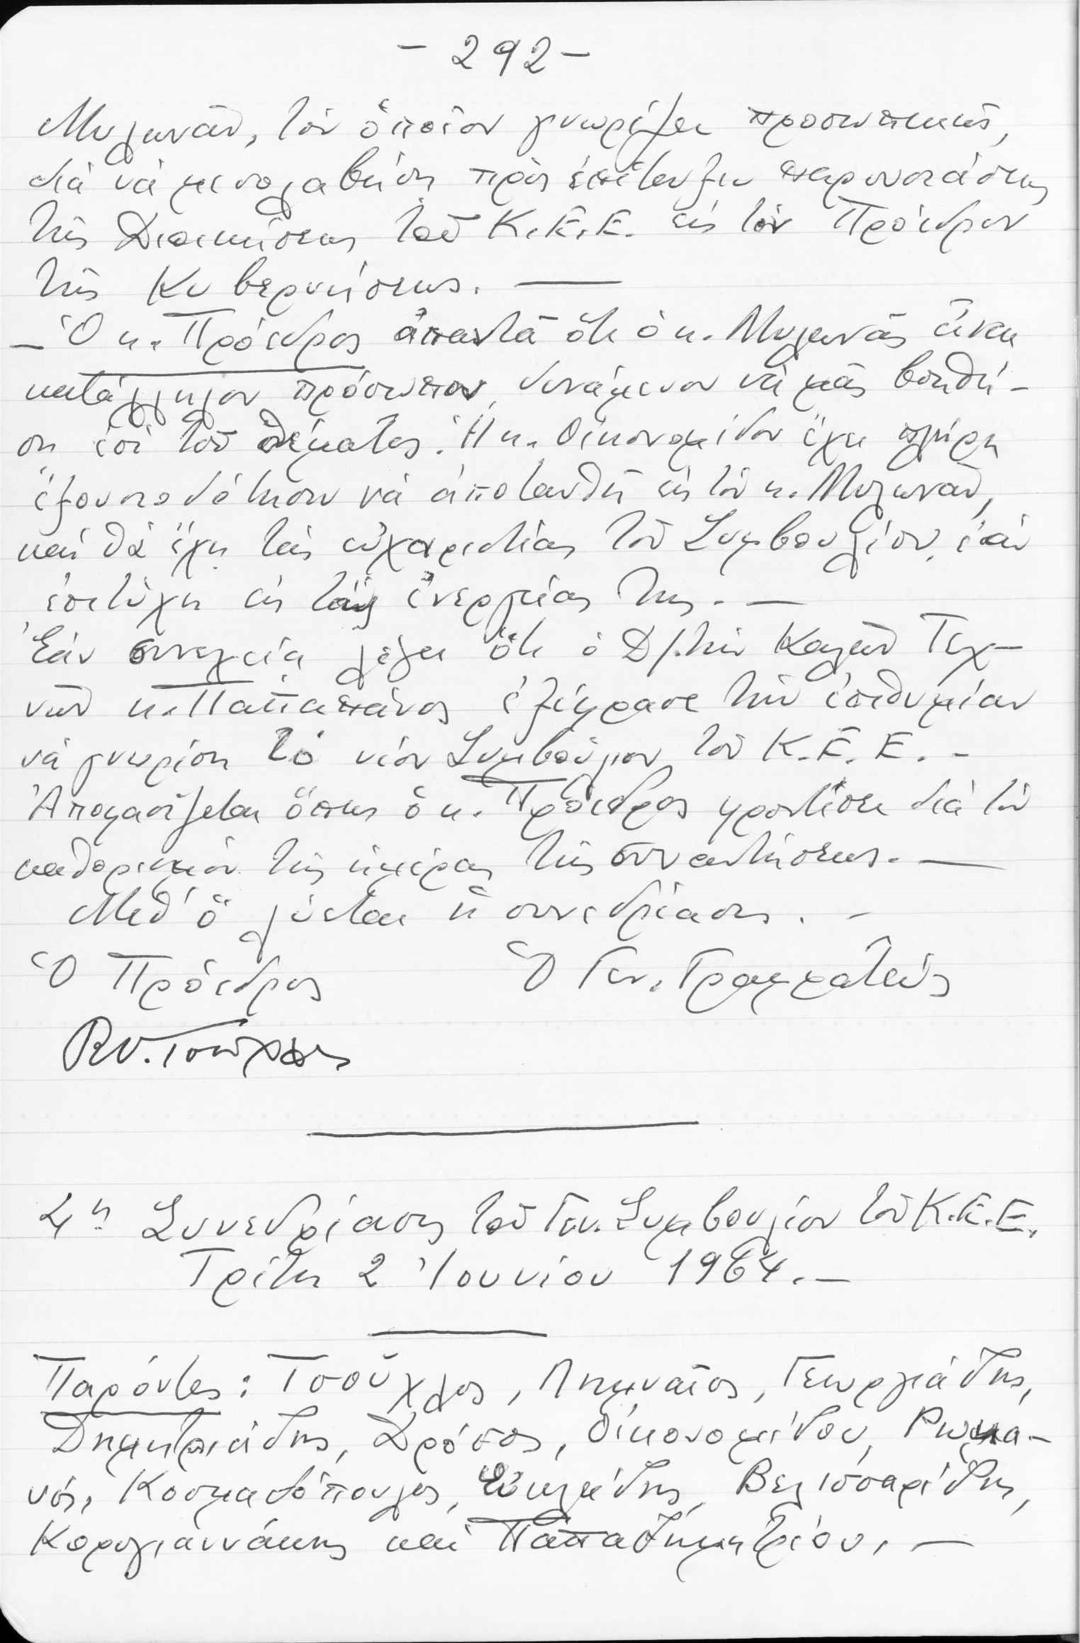 - 292 -
Μυλωνᾶν, τὸν ὁποῖον γνωρίζει προσωπικῶς,
διὰ νὰ μεσολαβήσῃ πρὸς ἐπίτευξιν παρουσιάσεως
τῆς Διοικήσεως τοῦ Κ.Ε.Ε. εἰς τὸν Πρόεδρον
τῆς Κυβερνήσεως. —
– Ὁ κ. Πρόεδρος ἀπαντᾶ ὅτι ὁ κ. Μυλωνᾶς εἶναι
κατάλληλον πρόσωπον, δυνάμενον νὰ μᾶς βοηθή-
σῃ ἐπὶ τοῦ θέματος. Ἡ κ. Οἰκονομίδου ἔχει πλήρη
ἐξουσιοδότησιν νὰ ἀποτανθῇ εἰς τὸν κ. Μυλωνᾶν,
καὶ θὰ ἔχῃ τὰς εὐχαριστίας τοῦ Συμβουλίου, ἐὰν
ἐπιτύχῃ εἰς τὰς ἐνεργείας της. —
Ἐν συνεχείᾳ λέγει ὅτι ὁ Δ/τὴς Καλῶν Τεχ-
νῶν κ. Παπαπάνος ἐξέφρασε τὴν ἐπιθυμίαν
νὰ γνωρίσῃ τὸ νέον Συμβούλιον τοῦ Κ.Ε.Ε. –
Ἀποφασίζεται ὅπως ὁ κ. Πρόεδρος φροντίσει διὰ τὸν
καθορισμὸν τῆς ἡμέρας τῆς συναντήσεως. —
Μεθ' ὃ λύεται ἡ συνεδρίασις. –
Ὁ Πρόεδρος Ὁ Γεν. Γραμματεὺς
4η Συνεδρίασις τοῦ Γεν. Συμβουλίου τοῦ Κ.Ε.Ε.
Τρίτη 2 Ἰουνίου 1964. –
Παρόντες: Τσοῦχλος, Λημναῖος, Γεωργιάδης,
Δημητριάδης, Δρόσος, Οἰκονομίδου, Ρωμα-
νός, Κοσμαδόπουλος, Εὐκλείδης, Βελισσαρίδης,
Καρυγιαννάκης καὶ Παπαδημητρίου. —